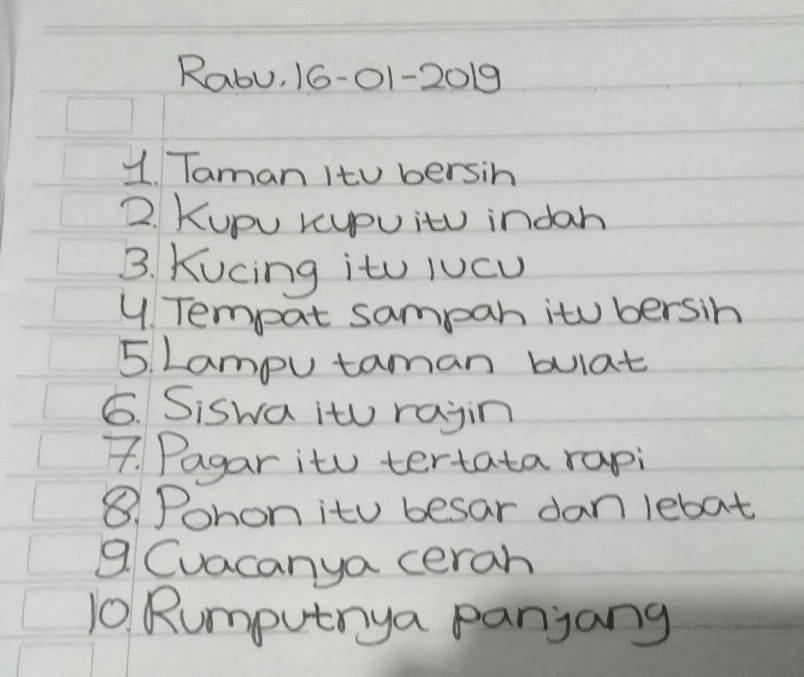 Rabu. 16-01-2019
1. Taman itu bersih
2. Kupu kupu itu indah
3. Kucing itu lucu
4. Tempat sampah itu bersih
5. Lampu taman bulat
6. Siswa itu rajin
7. Pagar itu tertata rapi
8. Pohon itu besar dan lebat
9. Cuacanya cerah
10. Rumputnya panjang